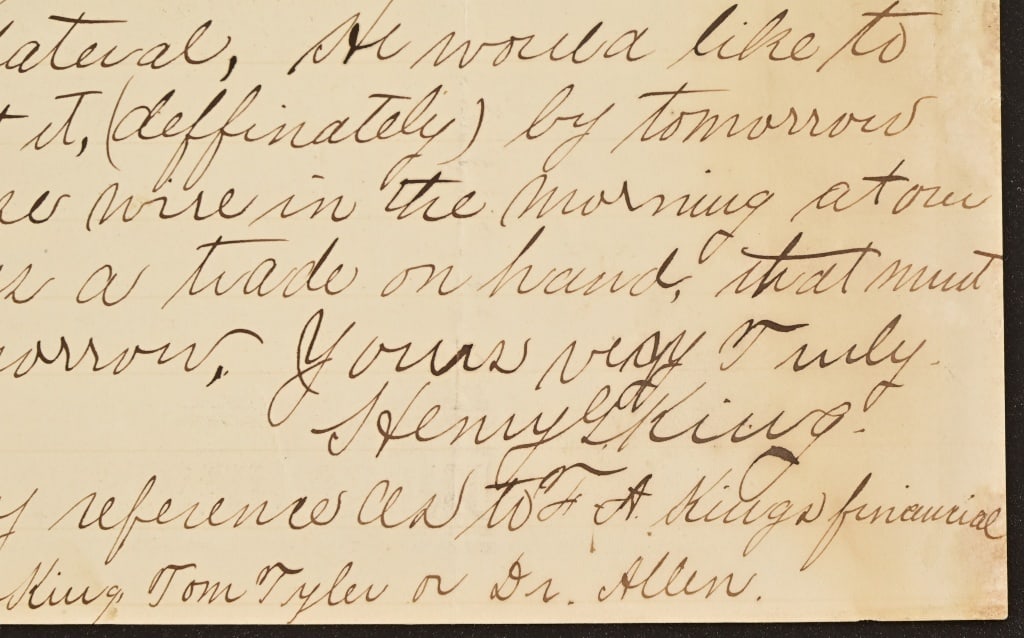 lateral, He would like to
t it, (deffinately) by tomorrow
se wire in the morning at our
as a trade on hand, that must
morrow, Yours very Truly.
Henry G King.
y reference as to F A Kings financial
King Tom Tyler or Dr. Allen.